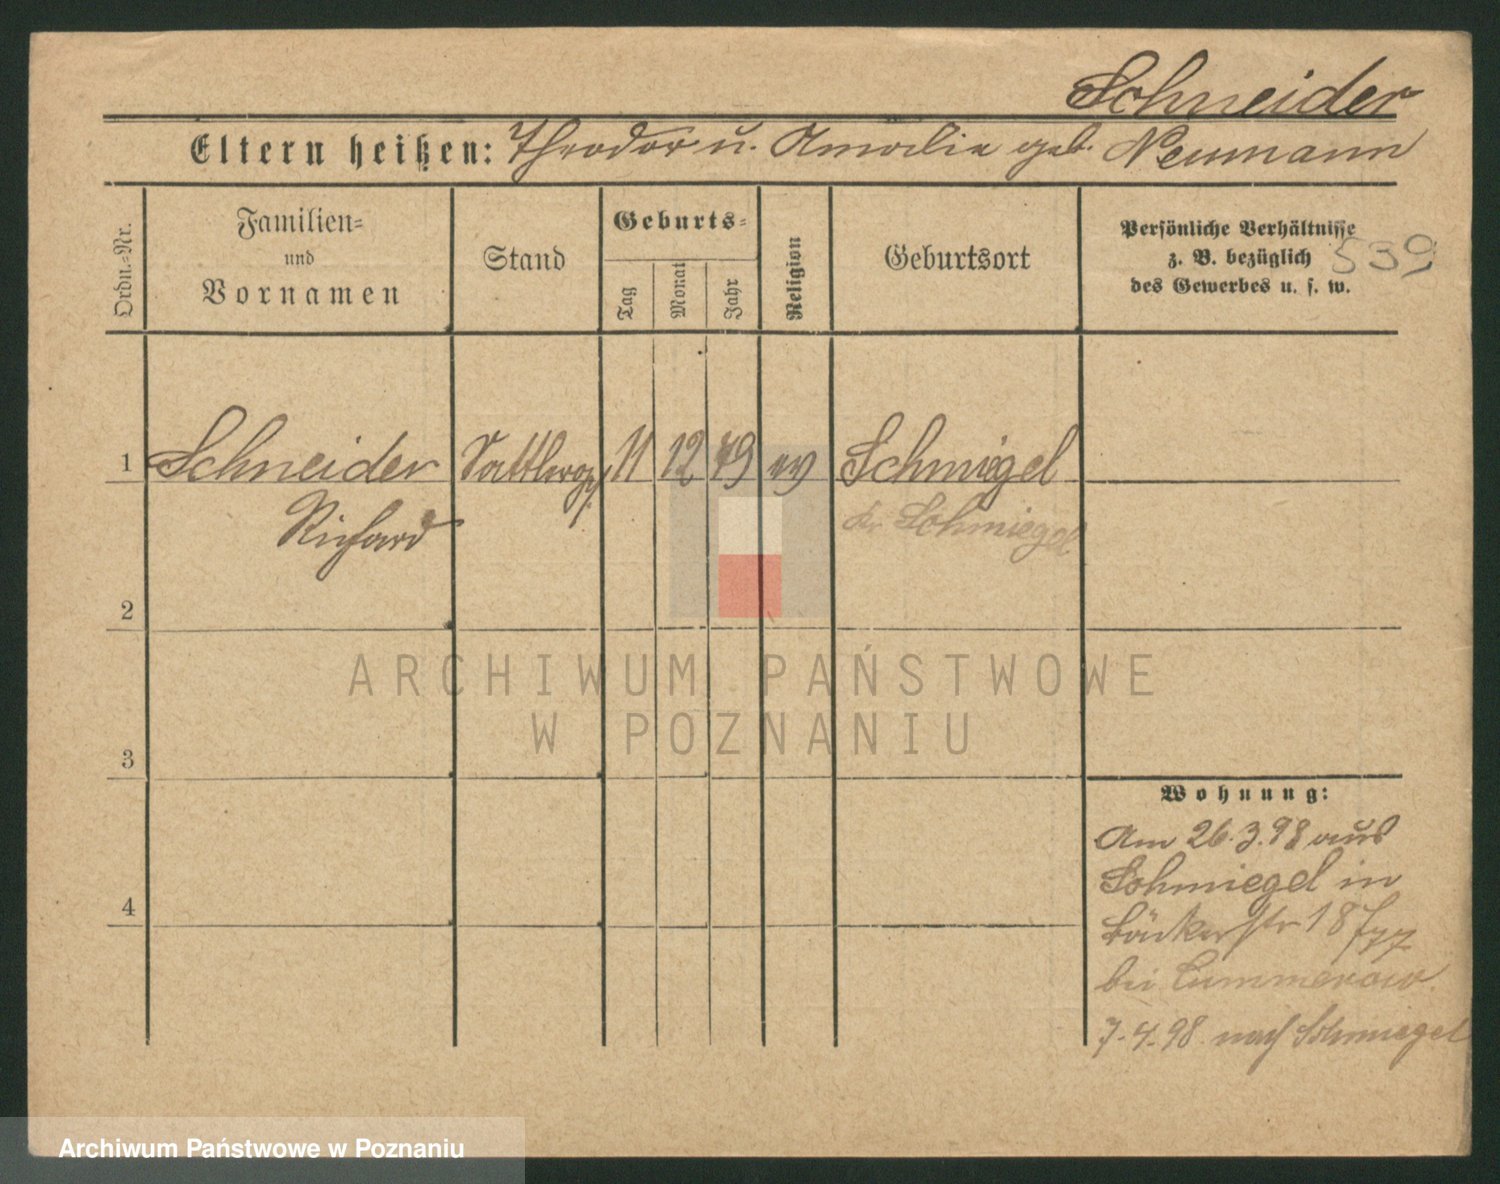 Schneider
Eltern heißen: Theodor u. Amalie geb. Neumann
Ordn.-Nr.
Familien-
und
Vornamen
Stand
Geburts-
Tag
Monat
Jahr
Religion
Geburtsort
Persönliche Verhältnisse
z. B. bezüglich
des Gewerbes u. s. w.
539
1 Schneider Sattlerges. 11 12 79 ev Schmiegel
Richard
Kr Schmiegel
2
3
4
Wohnung:
Am 26.3.98 aus
Schmiegel in
Bäckerstr 18
bei Cummerow.
7.4.98 nach Schmiegel
ARCHIWUM PAŃSTWOWE
W POZNANIU
Archiwum Państwowe w Poznaniu